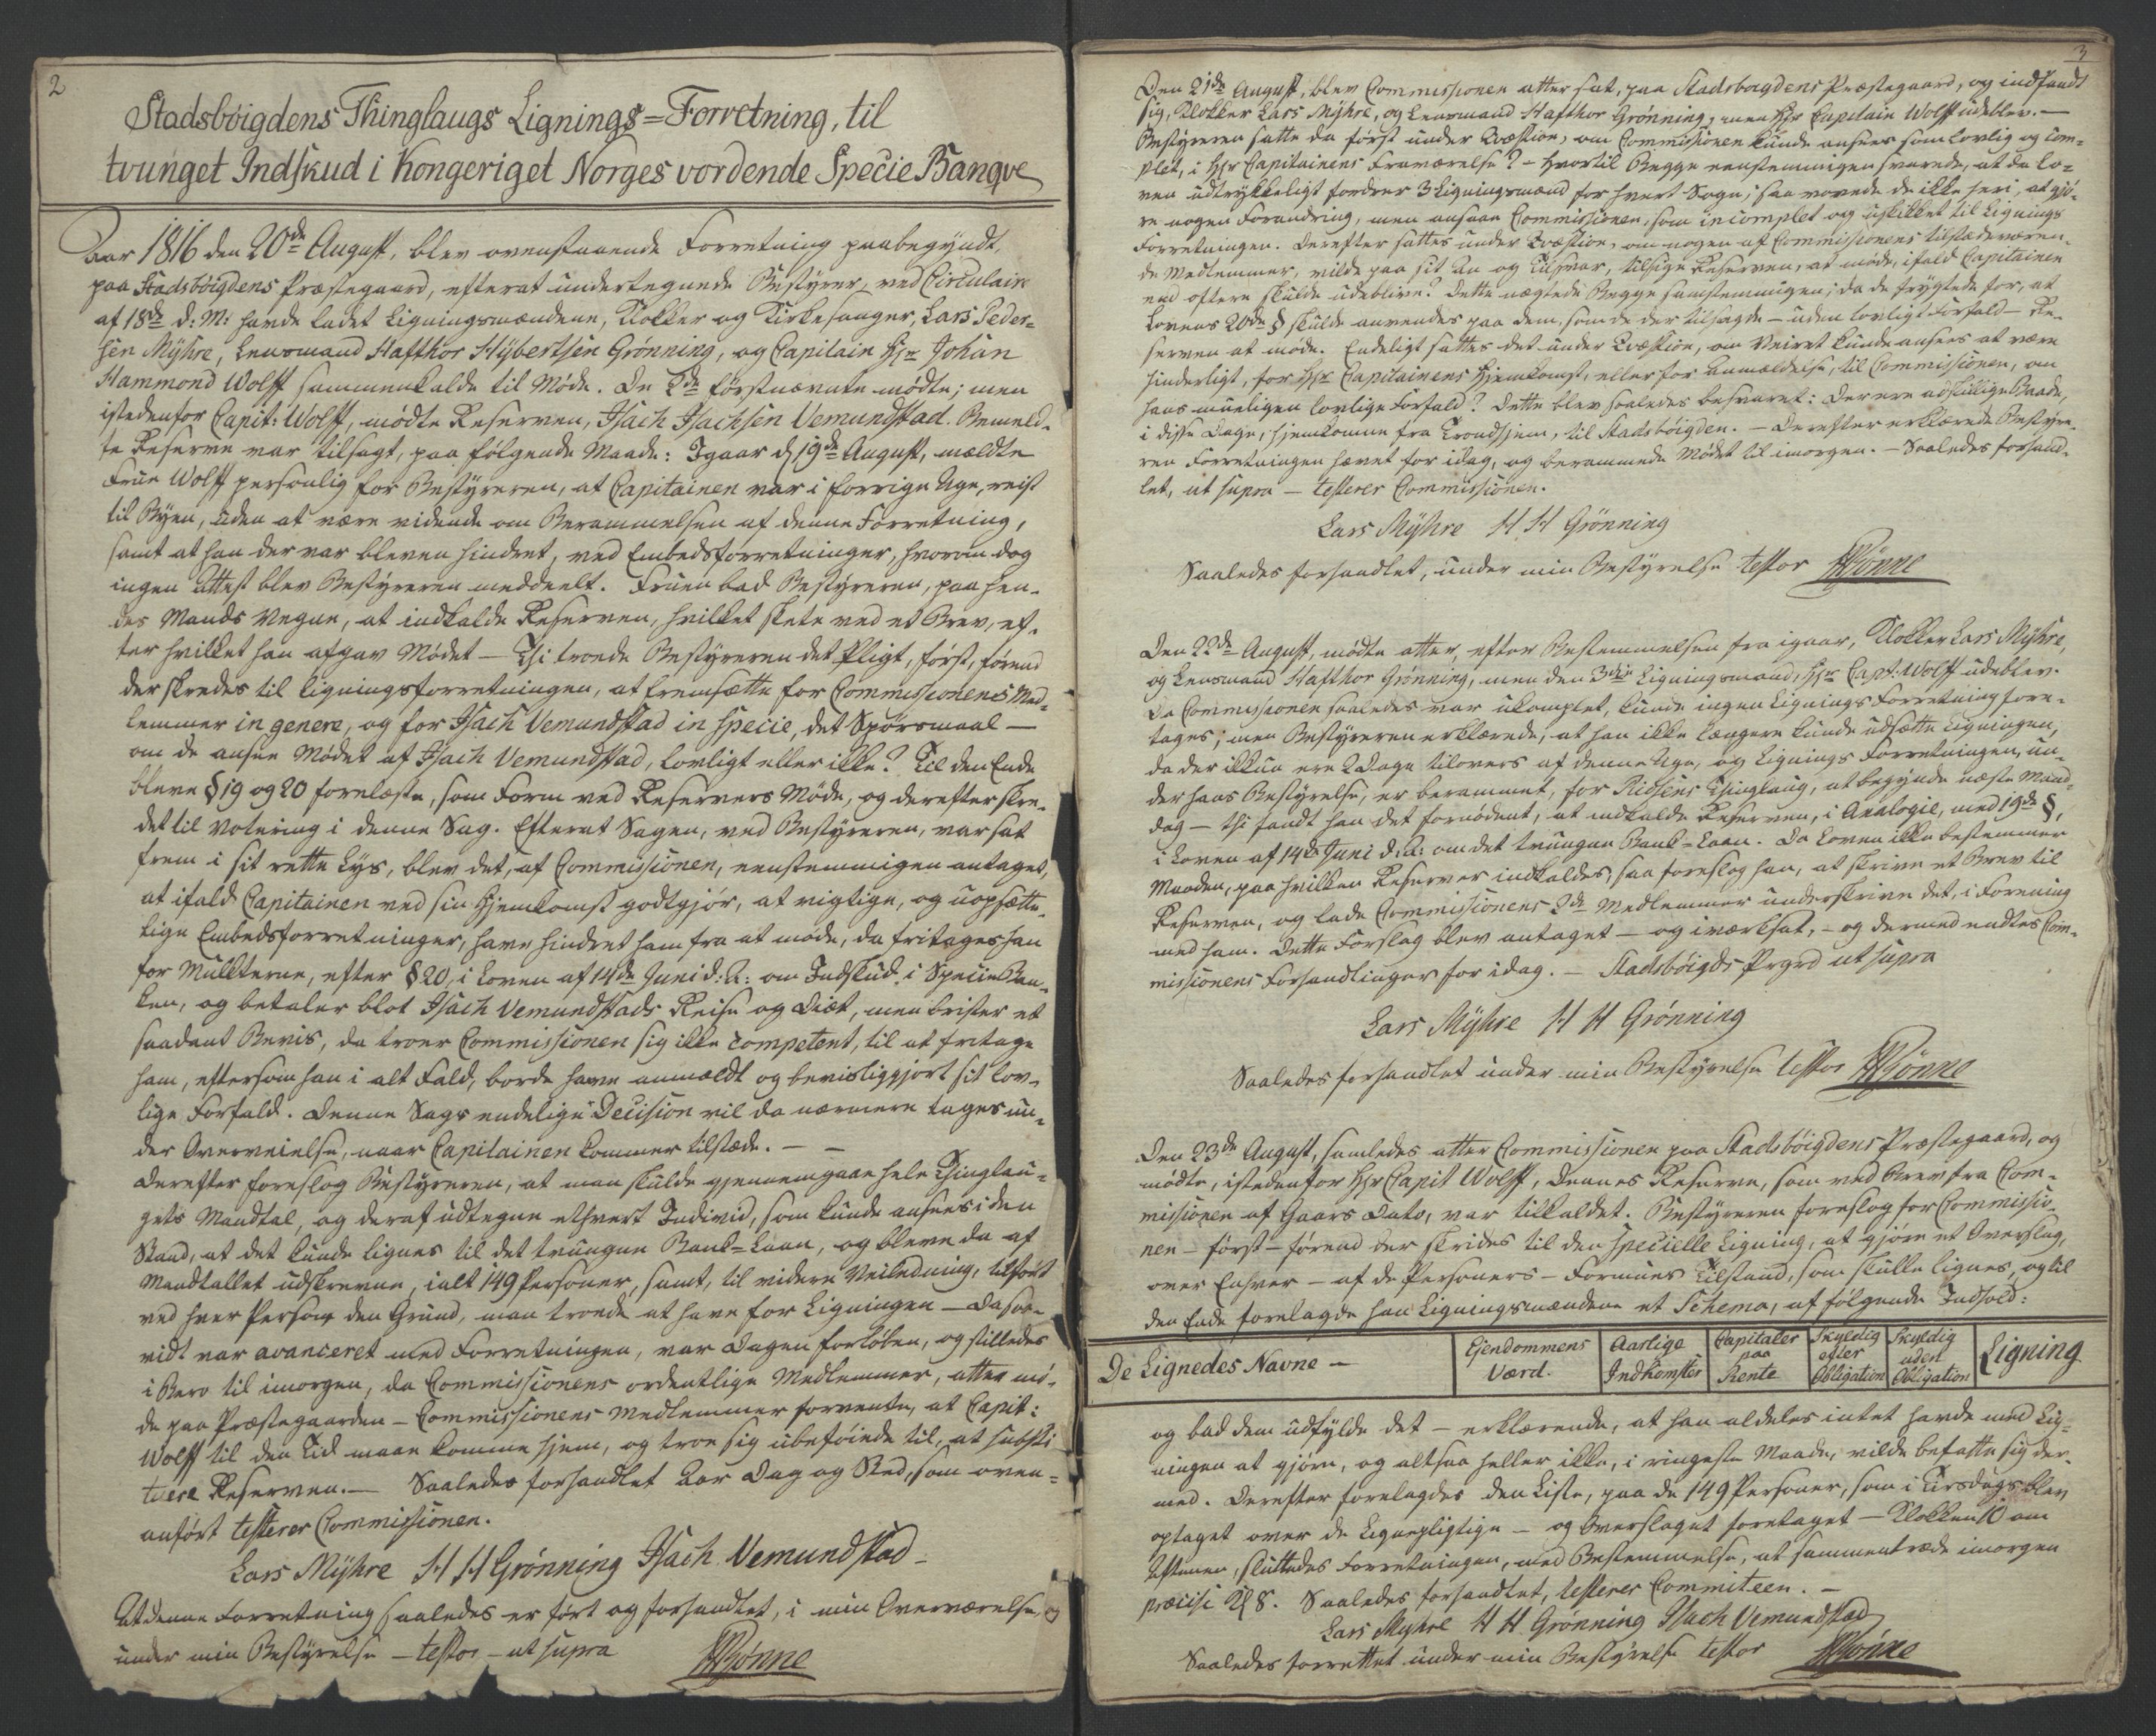 2
Stadsböigdens Thinglaugs Lignings=Forretning, til
tvunget Indskud i Kongeriget Norges vordende Specie Banqve
Aar 1816 den 20de August, blev ovenstaaende Forretning paabegyndt,
paa Stadsböigdens Præstegaard, efterat undertegnede Bestyrer, ved Circulaire
af 18de d: M: havde ladet Ligningsmændene, Klokker og Kirkesanger, Lars Peder=
sen Mÿhre, Lensmand Hafthor Hÿbertsen Grönning, og Capitain Hr Johan
Hammond Wolff sammenkalde til Möde. De 2de förstnævnte mödte; men
istedenfor Capit: Wolff, mödte Reserven, Isach Isachsen Vemundstad. Bemeld=
te Reserve var tilsagt, paa fölgende Maade: Igaar d. 19de August, meldte
Frue Wolff personlig for Bestyreren, at Capitainen var i forrige Uge, reist
til Byen, uden at være vidende om Berammelsen af denne Forretning,
samt at han der var bleven hindret, ved Embedsforretninger, hvorom dog
ingen Attest blev Bestyreren meddeelt. Fruen bad Bestyreren, paa hen=
des Mands Vegne, at indkalde Reserven, hvilket skete ved et Brev, ef=
ter hvilket han afgav Mödet — Thi troede Bestyreren det Pligt, först, förend
der skredes til Ligningsforretningen, at fremsætte for Commissionens Med=
lemmer in genere, og for Isach Vemundstad in specie, det Spörsmaal —
om de ansee Mödet af Isach Vemundstad, lovligt eller ikke? Til den Ende
bleve § 19 og 20 forelæste, som Form ved Reservers Möde, og derefter skre=
det til Votering i denne Sag. Efterat Sagen, ved Bestyreren, var sat
frem i sit rette Lys, blev det, af Commissionen, eenstemmigen antaget,
at ifald Capitainen ved sin Hjemkomst godtgjör, at vigtige, og uopsætte=
lige Embedsforretninger, have hindret ham fra at möde, da fritages han
for Mulkterne, efter § 20, i Loven af 14de Juni d: A: om Indskud i Specie Ban=
ken, og betaler blot Isach Vemundstads Reise og Diæt, men brister et
saadant Beviis, da troer Commissionen sig ikke competent, til at fritage
ham, eftersom han i alt Fald, borde have anmældt og bevisliggjort sit lov=
lige Forfald. Denne Sags endelige Decision vil da nærmere tages un=
der Overveielse, naar Capitainen kommer tilstæde. — —
Derefter foreslog Bestyreren, at man skulde gjennemgaae hele Thinglau=
gets Mandtal, og deraf udtegne ethvert Individ, som kunde ansees i den
Stand, at det kunde lignes til det tvungne Bank=Laan, og bleve da af
Mandtallet udskrevne, ialt 149 Personer, samt, til videre Veiledning, tilfört
ved hver Person den Grund, man troede at have for Ligningen — Da saa=
vidt var avanceret med Forretningen, var Dagen forlöben, og stilledes
i Bero til imorgen, da Commissionens ordentlige Medlemmer, atter mö=
de paa Præstegaarden — Commissionens Medlemmer forvente, at Capit:
Wolff til den Tid maae komme hjem, og troe sig ubeföiede til, at substi=
tuere Reserven. — Saaledes forhandlet Aar Dag og Sted, som oven=
anfört testerer Commissionen.
Lars Mÿhre H H Grönning Isach Vemundstad —
At denne Forretning saaledes er fört og forhandlet, i min Overværelse, og
under min Bestyrelse — testor — ut supra
HRönne
3
Den 21de August, blev Commissionen atter sat, paa Stadsböigdens Præstegaard, og indfandt
sig, Klokker Lars Mÿhre, og Lensmand Hafthor Grönning, men Hr Capitain Wolff udeblev. —
Bestyreren satte da först under Qvæstion, om Commissionen kunde ansees som lovlig og com=
plet, i Hr Capitainens Fraværelse? — Hvortil Begge eenstemmigen svarede, at da Lo=
ven udtrykkeligt fordrer 3 Ligningsmænd for hvert Sogn, saa vovede de ikke heri, at gjö=
re nogen Forandring, men ansaae Commissionen, som incomplet og uskikket til Lignings
Forretningen. Derefter sattes under Qvæstion, om nogen af Commissionens tilstædeværen=
de Medlemmer, vilde paa sit An og Tilsvar, tilsige Reserven, at möde, ifald Capitainen
end oftere skulde udeblive? Dette nægtede Begge samstemmigen; da de frygtede for, at
Lovens 20de § skulde anvendes paa dem, som de der tilsagde — uden lovligt Forfald — Re=
serven at möde. Endeligt sattes det under Qvæstion, om Veiret kunde ansees at være
hinderligt, for Hr Capitainens Hjemkomst, eller for Anmældelse, til Commissionen, om
hans mueligen lovlige Forfald? Dette blev saaledes besvaret: Der ere adskillige Baade,
i disse Dage, hjemkomne fra Trondhjem, til Stadsböigden. — Derefter erklærede Bestyre=
ren Forretningen hævet for idag, og berammede Mödet til imorgen. — Saaledes forhand=
let, ut supra — testerer Commissionen.
Lars Mÿhre H H Grönning
Saaledes forhandlet, under min Bestyrelse testor HRönne
Den 22de August, mödte atter, efter Bestemmelsen fra igaar, Klokker Lars Mÿhre,
og Lensmand Hafthor Grönning, men den 3die Ligningsmand, Hr Capt: Wolff udeblev.
Da Commissionen saaledes var ukomplet, kunde ingen Lignings Forretning fore=
tages; men Bestyreren erklærede, at han ikke længere kunde udsætte Ligningen,
da der ikkun ere 2 Dage tilovers af denne Uge, og Lignings Forretningen, un=
der hans Bestyrelse, er berammet, for Rissens Thinglaug, at begynde næste Man=
dag — thi fandt han det fornödent, at indkalde Reserven, i Analogie, med 19de §,
i Loven af 14de Juni d: A: om det tvungne Bank=Laan. Da Loven ikke bestemmer
Maaden, paa hvilken Reserver indkaldes, saa foreslog han, at skrive et Brev til
Reserven, og lade Commissionens 2de Medlemmer underskrive det, i Forening
med ham. Dette Forslag blev antaget — og iværksat, — og dermed endtes Com=
missionens Forhandlinger for idag. — Stadsböigds Prgrd ut supra
Lars Mÿhre H H Grönning
Saaledes forhandlet under min Bestyrelse testor HRönne
Den 23de August, samledes atter Commissionen paa Stadsböigdens Præstegaard, og
mödte, istedenfor Hr Capit Wolff, dennes Reserve, som ved Brev fra Com=
missionen af Gaars Dato, var tilkaldet. Bestyreren foreslog for Commissio=
nen — först — förend der skrides til den specielle Ligning, at gjöre et Overslag,
over Enhver — af de Personers — Formues Tilstand, som skulle lignes, og til
den Ende forelagde han Ligningsmændene et Schema, af fölgende Indhold:
De Lignedes Navne — Ejendommens Værd. Aarlige Indkomster Capitaler paa Rente Skyldig efter Obligation Skyldig uden Obligation Ligning
og bad dem udfylde det — erklærende, at han aldeles intet havde med Lig=
ningen at gjöre, og altsaa heller ikke, i ringeste Maade, vilde befatte sig der=
med. Derefter forelagdes den Liste, paa de 149 Personer, som i Tirsdags blev
optaget over de Lignepligtige — og Overslaget foretaget — Klokken 10 om
Aftenen, sluttedes Forretningen, med Bestemmelse, at sammentræde imorgen
præcise Kl 8. Saaledes forhandlet, testerer Commiteen. —
Lars Mÿhre H H Grönning Isach Vemundstad
Saaledes forrettet under min Bestyrelse testor HRönne